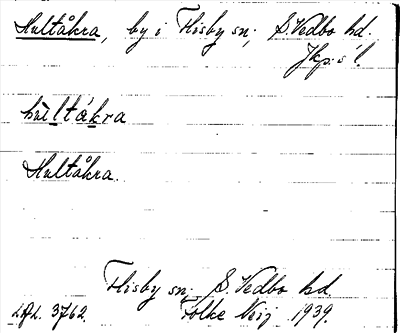 Hultåkra, by i Flisby sn, S. Vedbo hd.
Jkp:s l.
hùltákra
Hultåkra.
Flisby sn, S. Vedbo hd
Folke 1939.